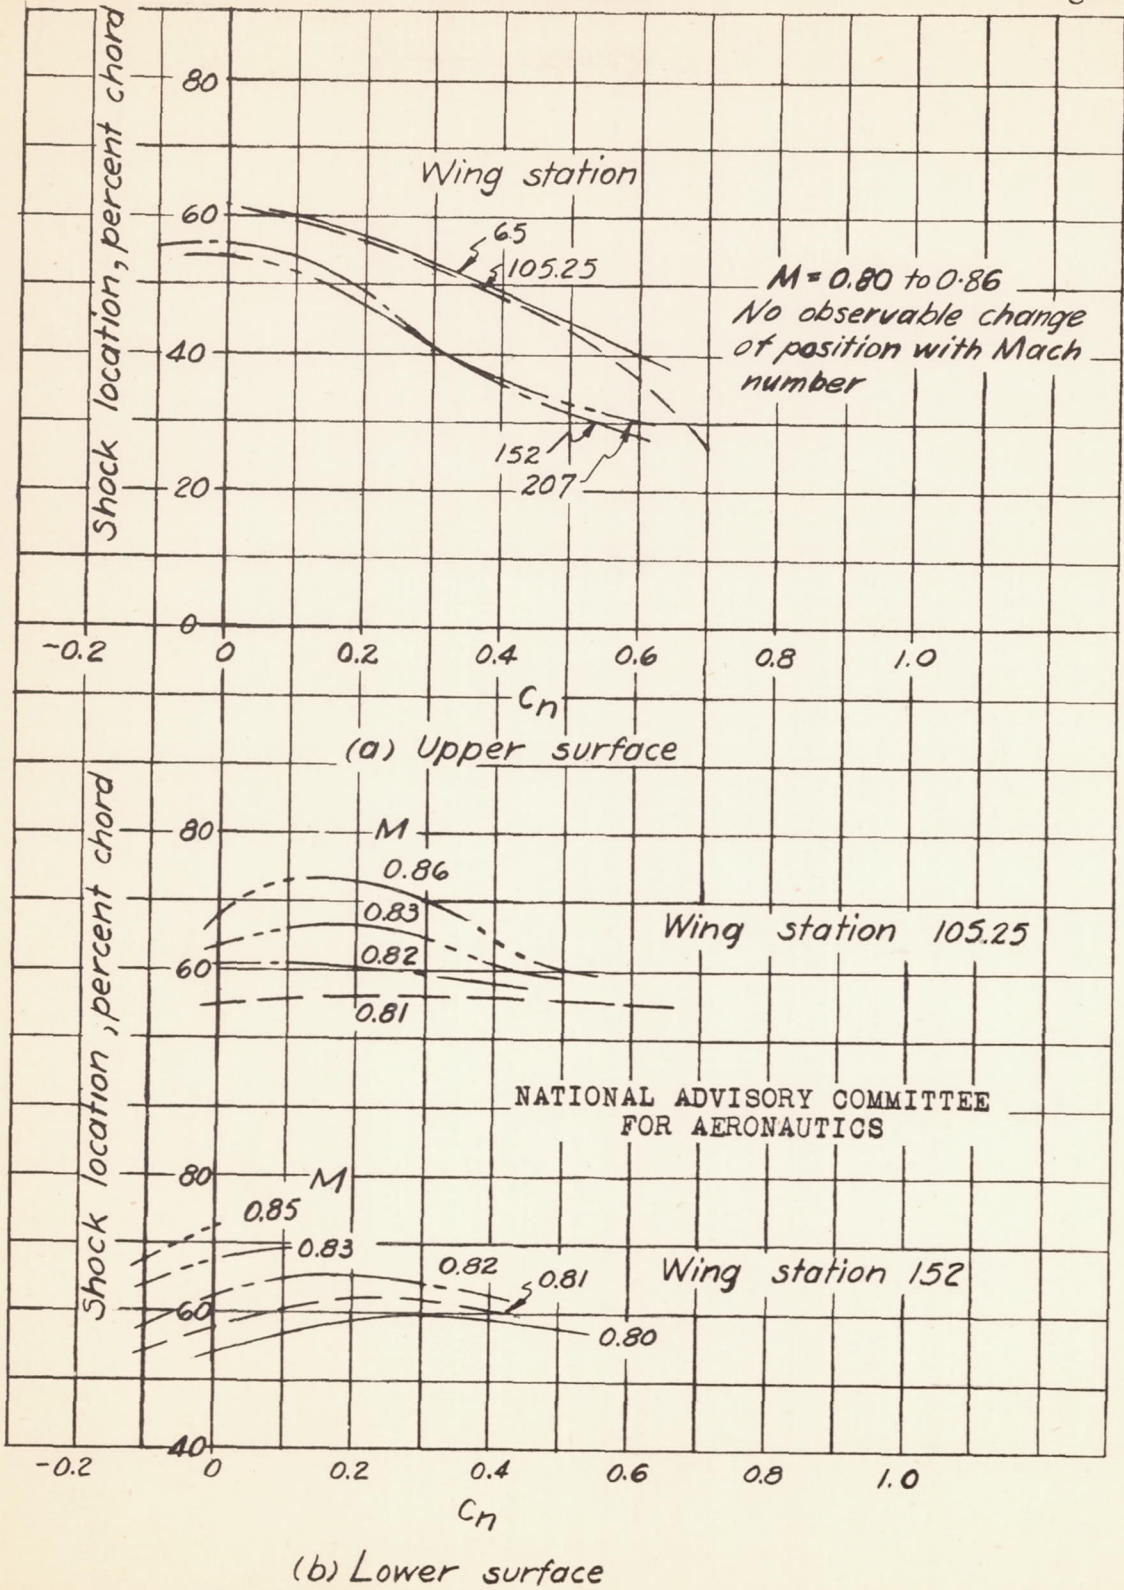 Shock location, percent chord
80
60
40
20
0
Wing station
65
105.25
152
207
M = 0.80 to 0.86
No observable change
of position with Mach
number
-0.2 0 0.2 0.4 0.6 0.8 1.0
Cn
(a) Upper surface
Shock location, percent chord
80
60
M
0.86
0.83
0.82
0.81
Wing station 105.25
NATIONAL ADVISORY COMMITTEE
FOR AERONAUTICS
80
60
40
M
0.85
0.83
0.82
0.81
0.80
Wing station 152
-0.2 0 0.2 0.4 0.6 0.8 1.0
Cn
(b) Lower surface